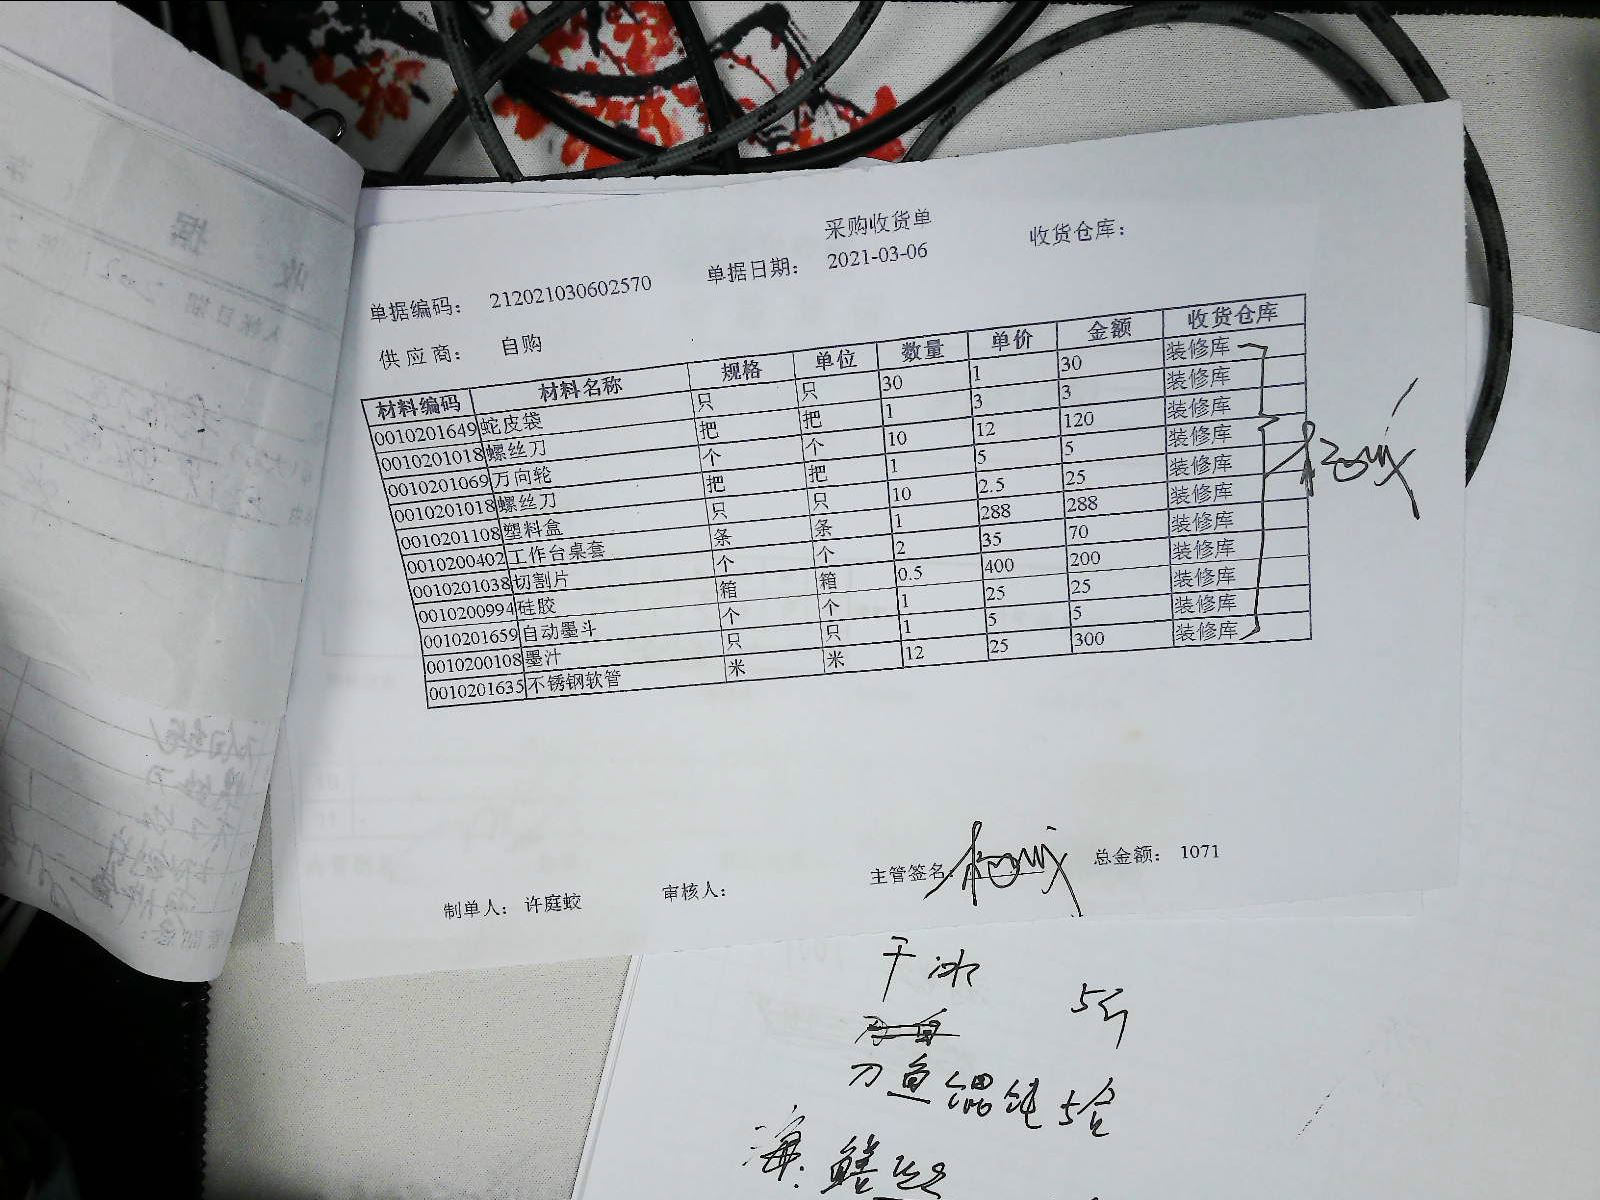 采购收货单
单据编码： 212021030602570 单据日期： 2021-03-06 收货仓库：
供应商： 自购
材料编码 材料名称 规格 单位 数量 单价 金额 收货仓库
0010201649 蛇皮袋 只 只 30 1 30 装修库
0010201018 螺丝刀 把 把 1 3 3 装修库
0010201069 万向轮 个 个 10 12 120 装修库
0010201018 螺丝刀 把 把 1 5 5 装修库
0010201108 塑料盒 只 只 10 2.5 25 装修库
0010200402 工作台桌套 条 条 1 288 288 装修库
0010201038 切割片 个 个 2 35 70 装修库
0010200994 硅胶 箱 箱 0.5 400 200 装修库
0010201659 自动墨斗 个 个 1 25 25 装修库
0010200108 墨汁 只 只 1 5 5 装修库
0010201635 不锈钢软管 米 米 12 25 300 装修库
制单人： 许庭蛟 审核人： 主管签名： 总金额： 1071
干冰 5斤
刀鱼馄饨 5合
海鳝